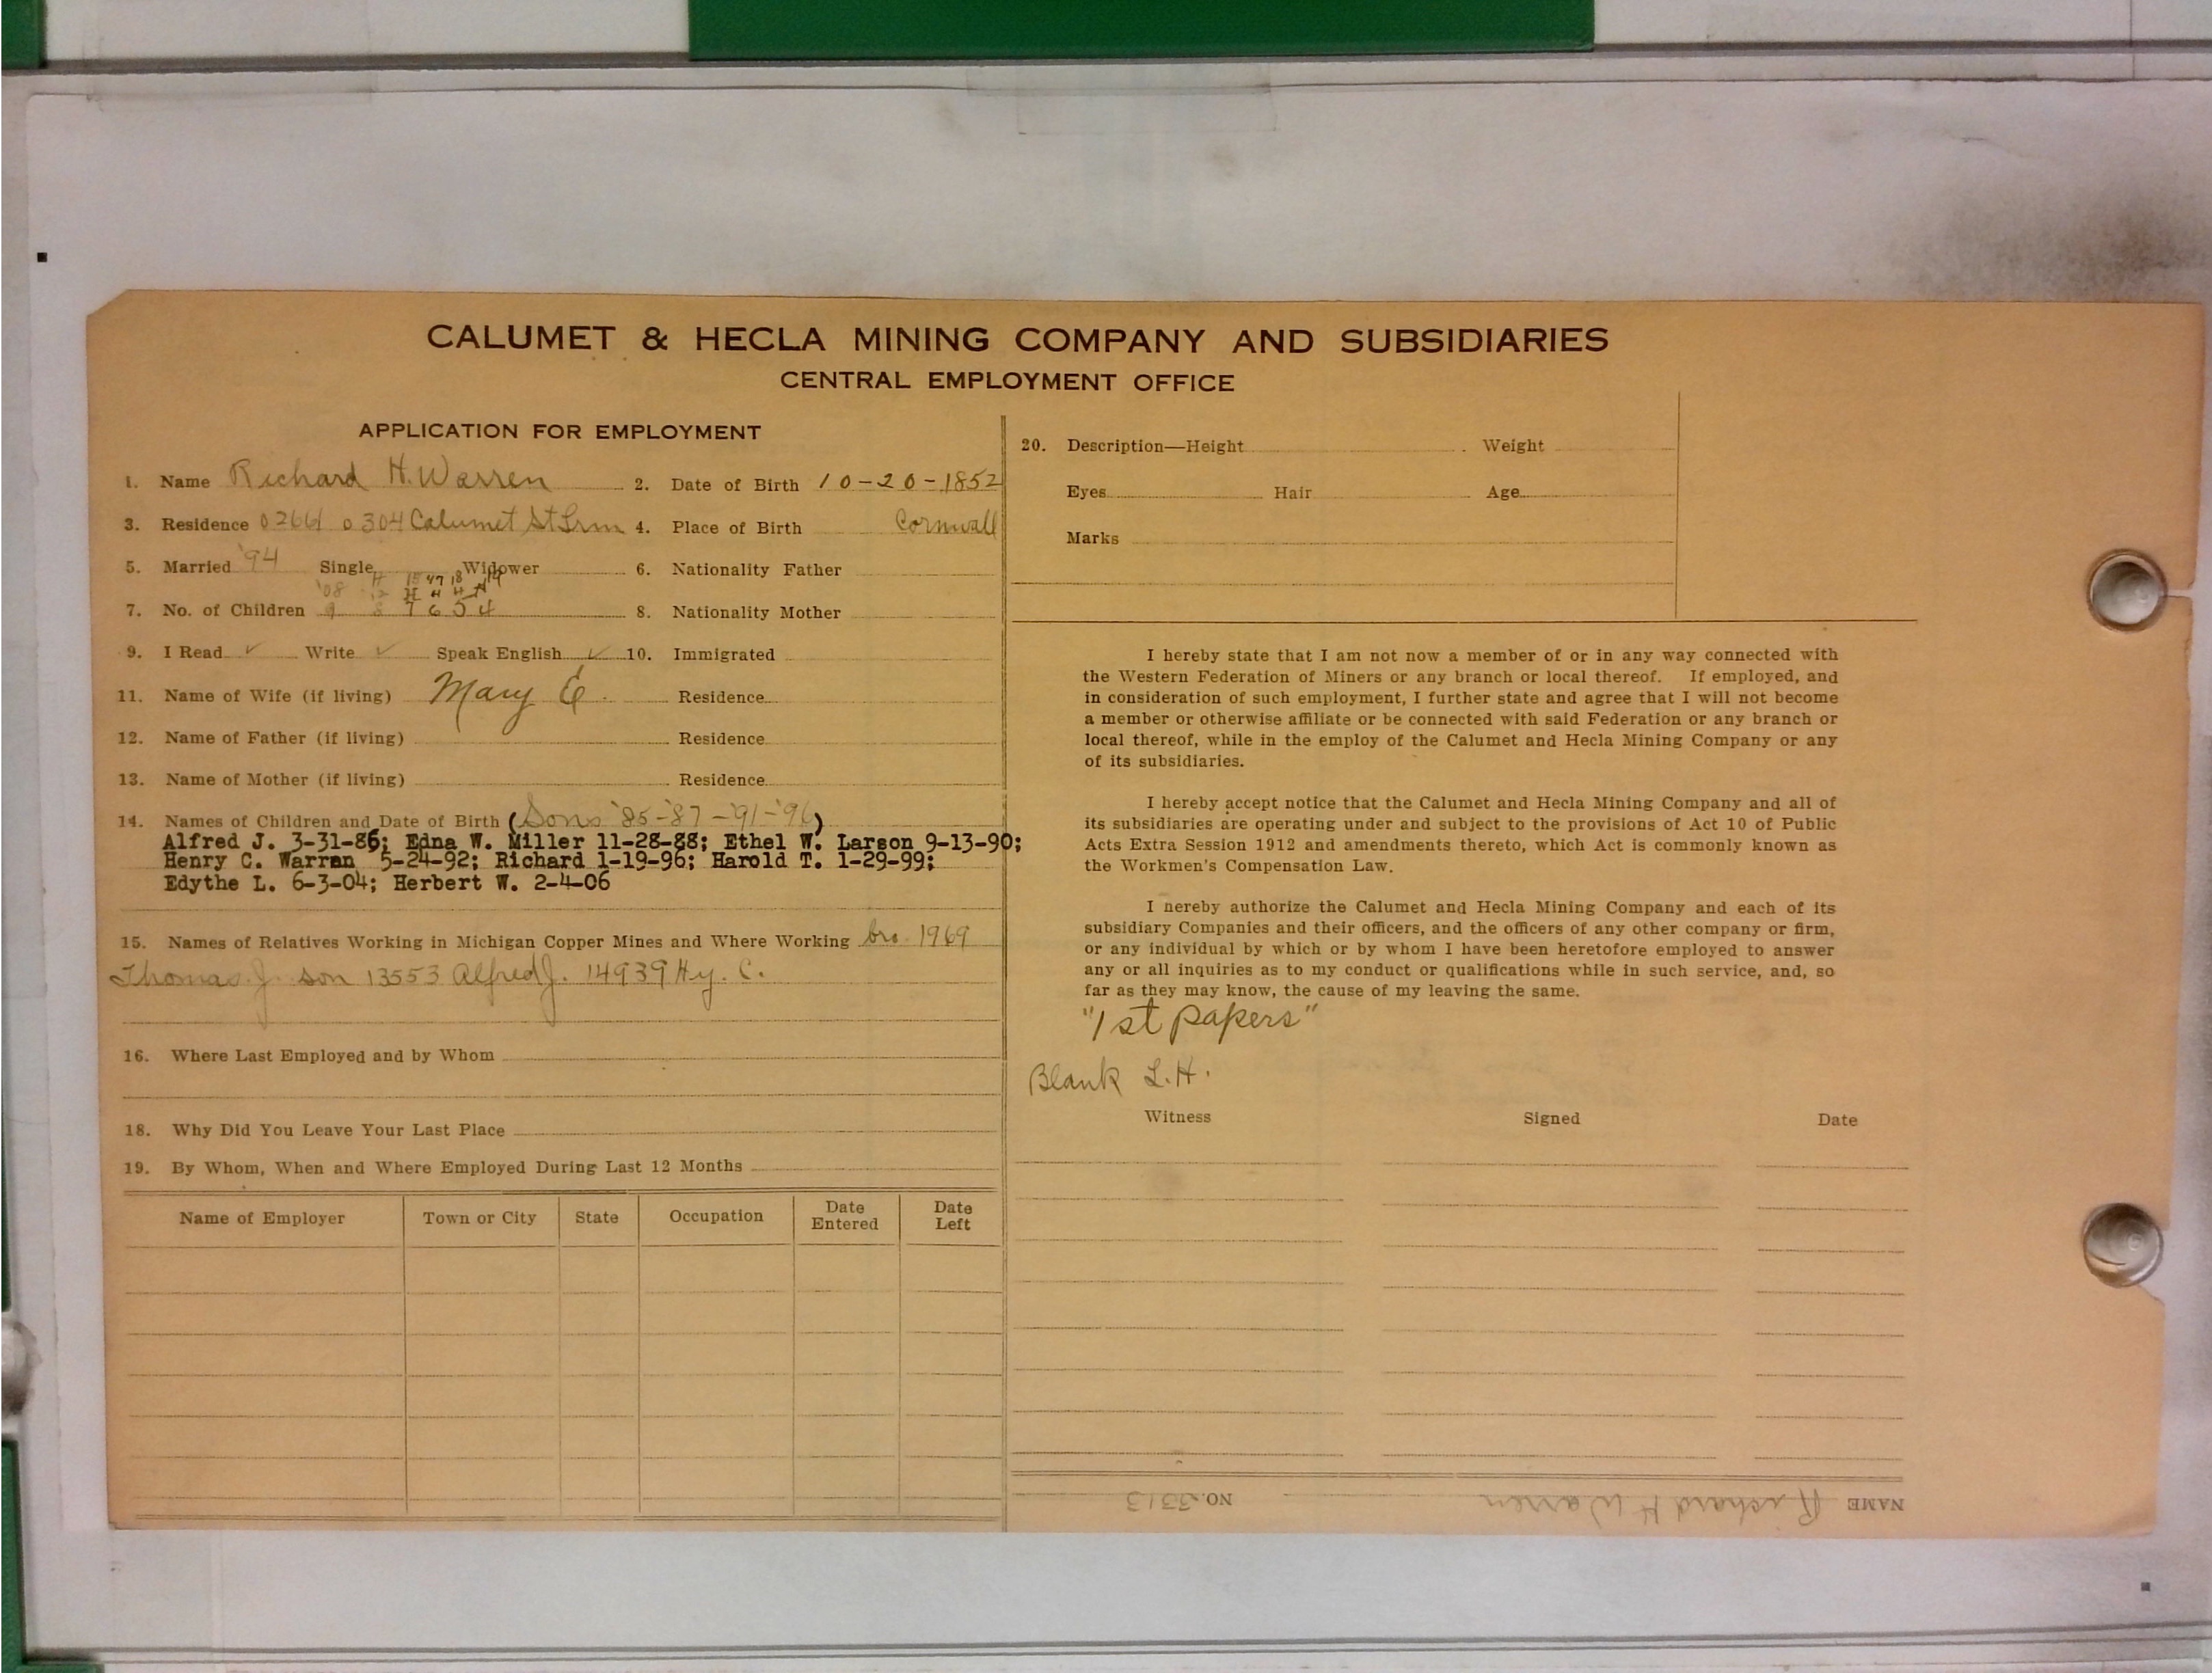 CALUMET & HECLA MINING COMPANY AND SUBSIDIARIES
CENTRAL EMPLOYMENT OFFICE
APPLICATION FOR EMPLOYMENT
1. Name Richard H. Warren 2. Date of Birth 10-20-1852
3. Residence 0304 Calumet St 4. Place of Birth Cornwall
5. Married '94 Single Widower 6. Nationality Father
'08
7. No. of Children 9 8 7 6 5 4 8. Nationality Mother
9. I Read ✓ Write ✓ Speak English ✓ 10. Immigrated
11. Name of Wife (if living) Mary E. Residence
12. Name of Father (if living) Residence
13. Name of Mother (if living) Residence
14. Names of Children and Date of Birth (Sons '85-'87-'91-'96)
Alfred J. 3-31-86; Edna W. Miller 11-28-88; Ethel W. Larson 9-13-90;
Henry C. Warren 5-24-92; Richard 1-19-96; Harold T. 1-29-99;
Edythe L. 6-3-04; Herbert W. 2-4-06
15. Names of Relatives Working in Michigan Copper Mines and Where Working bro. 1969
Thomas J. son 13553 Alfred J. 14939 Hy. C.
16. Where Last Employed and by Whom
18. Why Did You Leave Your Last Place
19. By Whom, When and Where Employed During Last 12 Months
Name of Employer Town or City State Occupation Date Entered Date Left
20. Description—Height Weight
Eyes Hair Age
Marks
I hereby state that I am not now a member of or in any way connected with
the Western Federation of Miners or any branch or local thereof. If employed, and
in consideration of such employment, I further state and agree that I will not become
a member or otherwise affiliate or be connected with said Federation or any branch or
local thereof, while in the employ of the Calumet and Hecla Mining Company or any
of its subsidiaries.
I hereby accept notice that the Calumet and Hecla Mining Company and all of
its subsidiaries are operating under and subject to the provisions of Act 10 of Public
Acts Extra Session 1912 and amendments thereto, which Act is commonly known as
the Workmen's Compensation Law.
I hereby authorize the Calumet and Hecla Mining Company and each of its
subsidiary Companies and their officers, and the officers of any other company or firm,
or any individual by which or by whom I have been heretofore employed to answer
any or all inquiries as to my conduct or qualifications while in such service, and, so
far as they may know, the cause of my leaving the same.
"1st papers"
Blank L.H.
Witness Signed Date
NAME Richard H Warren NO. 3313